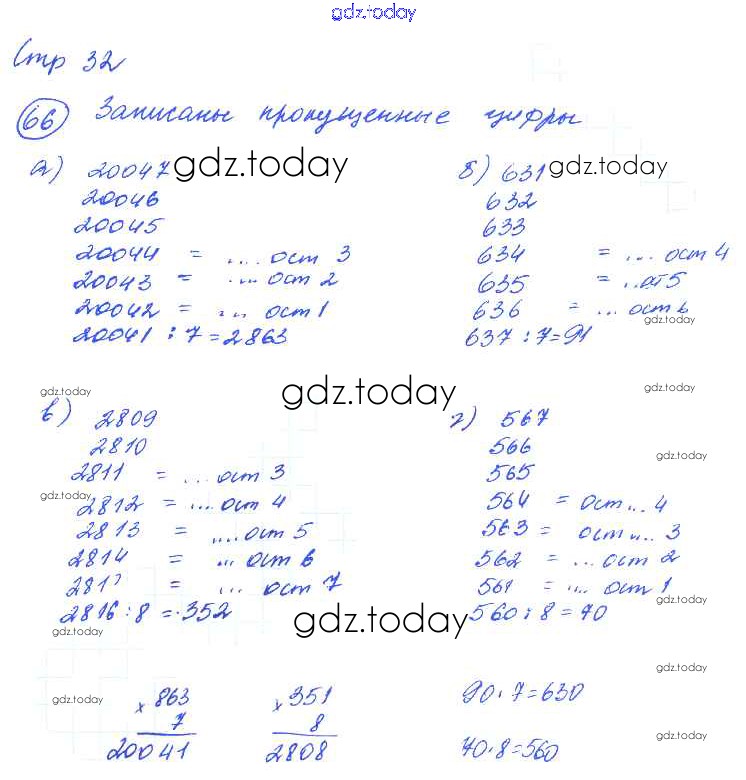 gdz.today
Стр 32
66 Записаны пропущенные цифры
а) 20047 gdz.today
20046
20045
20044 = .... ост 3
20043 = .... ост 2
20042 = ... ост 1
20041 : 7 = 2863
б) 631 gdz.today
632
633
634 = .... ост 4
635 = ...ост 5
636 = ... ост 6
gdz.today
637 : 7 = 91
gdz.today
gdz.today
gdz.today
в) 2809
2810
2811 = ... ост 3
gdz.today
2812 = .... ост 4
2813 = ....ост 5
2814 = ... ост 6
= ... ост 7
2816 : 8 = 352
gdz.today
gdz.today
г) 567
566
gdz.today
565
564 = ост ... 4
563 = ост .... 3
562 = ... ост 2
561 = .... ост 1
gdz.today
560 : 8 = 70
gdz.today
gdz.today
x 863
7
20041
x 351
8
2808
90 · 7 = 630
gdz.today
70 · 8 = 560